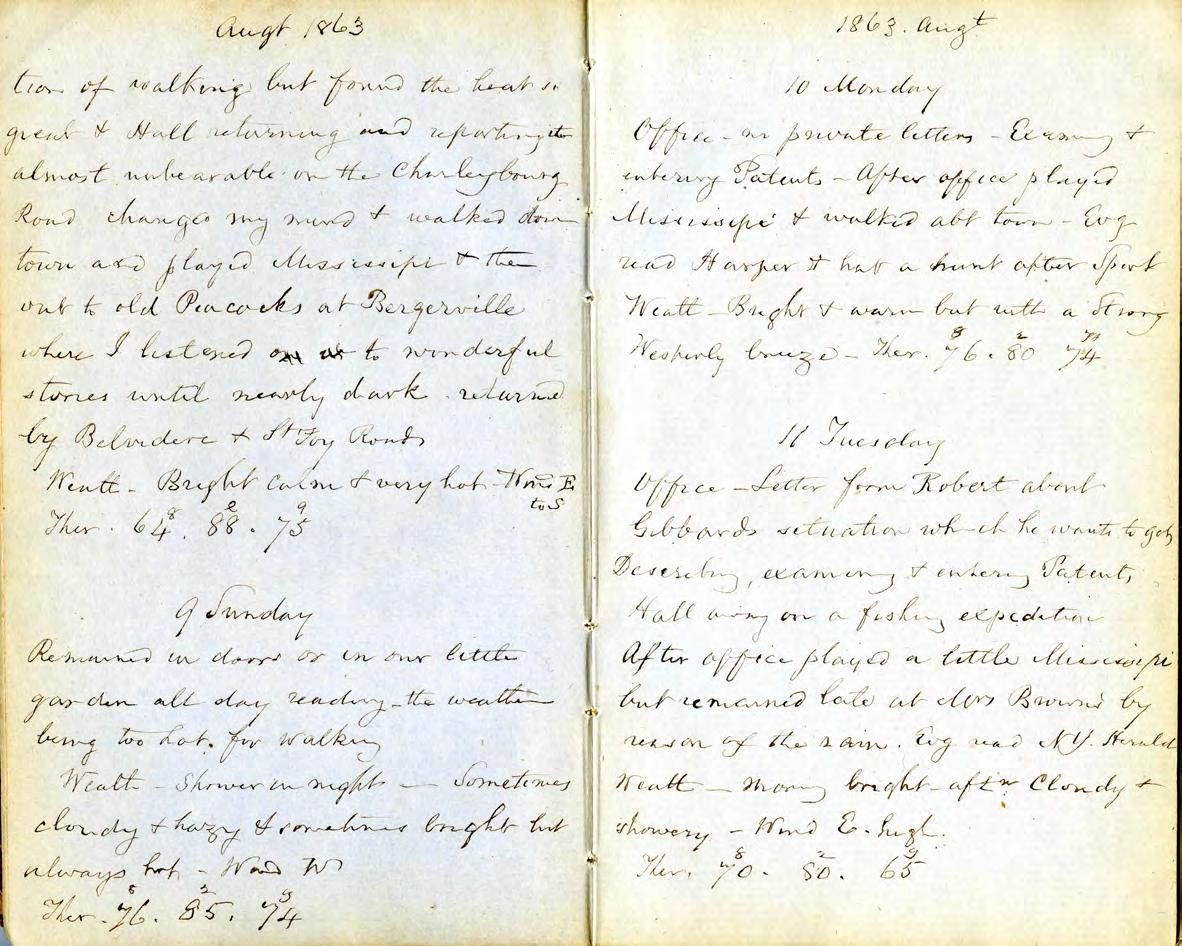 Augt 1863
tion of walking but found the heat so
great & Hall returning and reporting it
almost unbearable on the Charlesbourg
Road changed my mind & walked down
town and played Mississipi & then
out to old Peacocks at Bergerville
where I listened to wonderful
stories until nearly dark - returned
by Belvidere & St Foy Roads
Weath - Bright calm & very hot - Wind E
to S
Ther. 64 8. 88 2. 75 9
9 Sunday
Remained in doors or in our little
garden all day reading - the weather
being too hot for walking
Weath - Shower in night - Sometimes
cloudy & hazy & sometimes bright but
always hot - Wind W
Ther. 76 8. 85 2. 74 9
1863. Augt
10 Monday
Office - no private letters - Examing &
entering Patents - After office played
Mississipi & walked abt town - Evg
read Harper & had a hunt after Spark
Weath - Bright & warm but with a Strong
Westerly breeze - Ther. 76 8. 80 2 74
11 Tuesday
Office - Letter from Robert about
Gibbards situation which he wants to get
Describing, examining & entering Patents
Hall away on a fishing expedition
After office played a little Mississipi
but remained late at Mrs Browns by
reason of the rain. Evg read N.Y. Herald
Weath - Morng bright - aftn Cloudy &
showery - Wind E.
Ther. 70 8. 80 2. 65 9